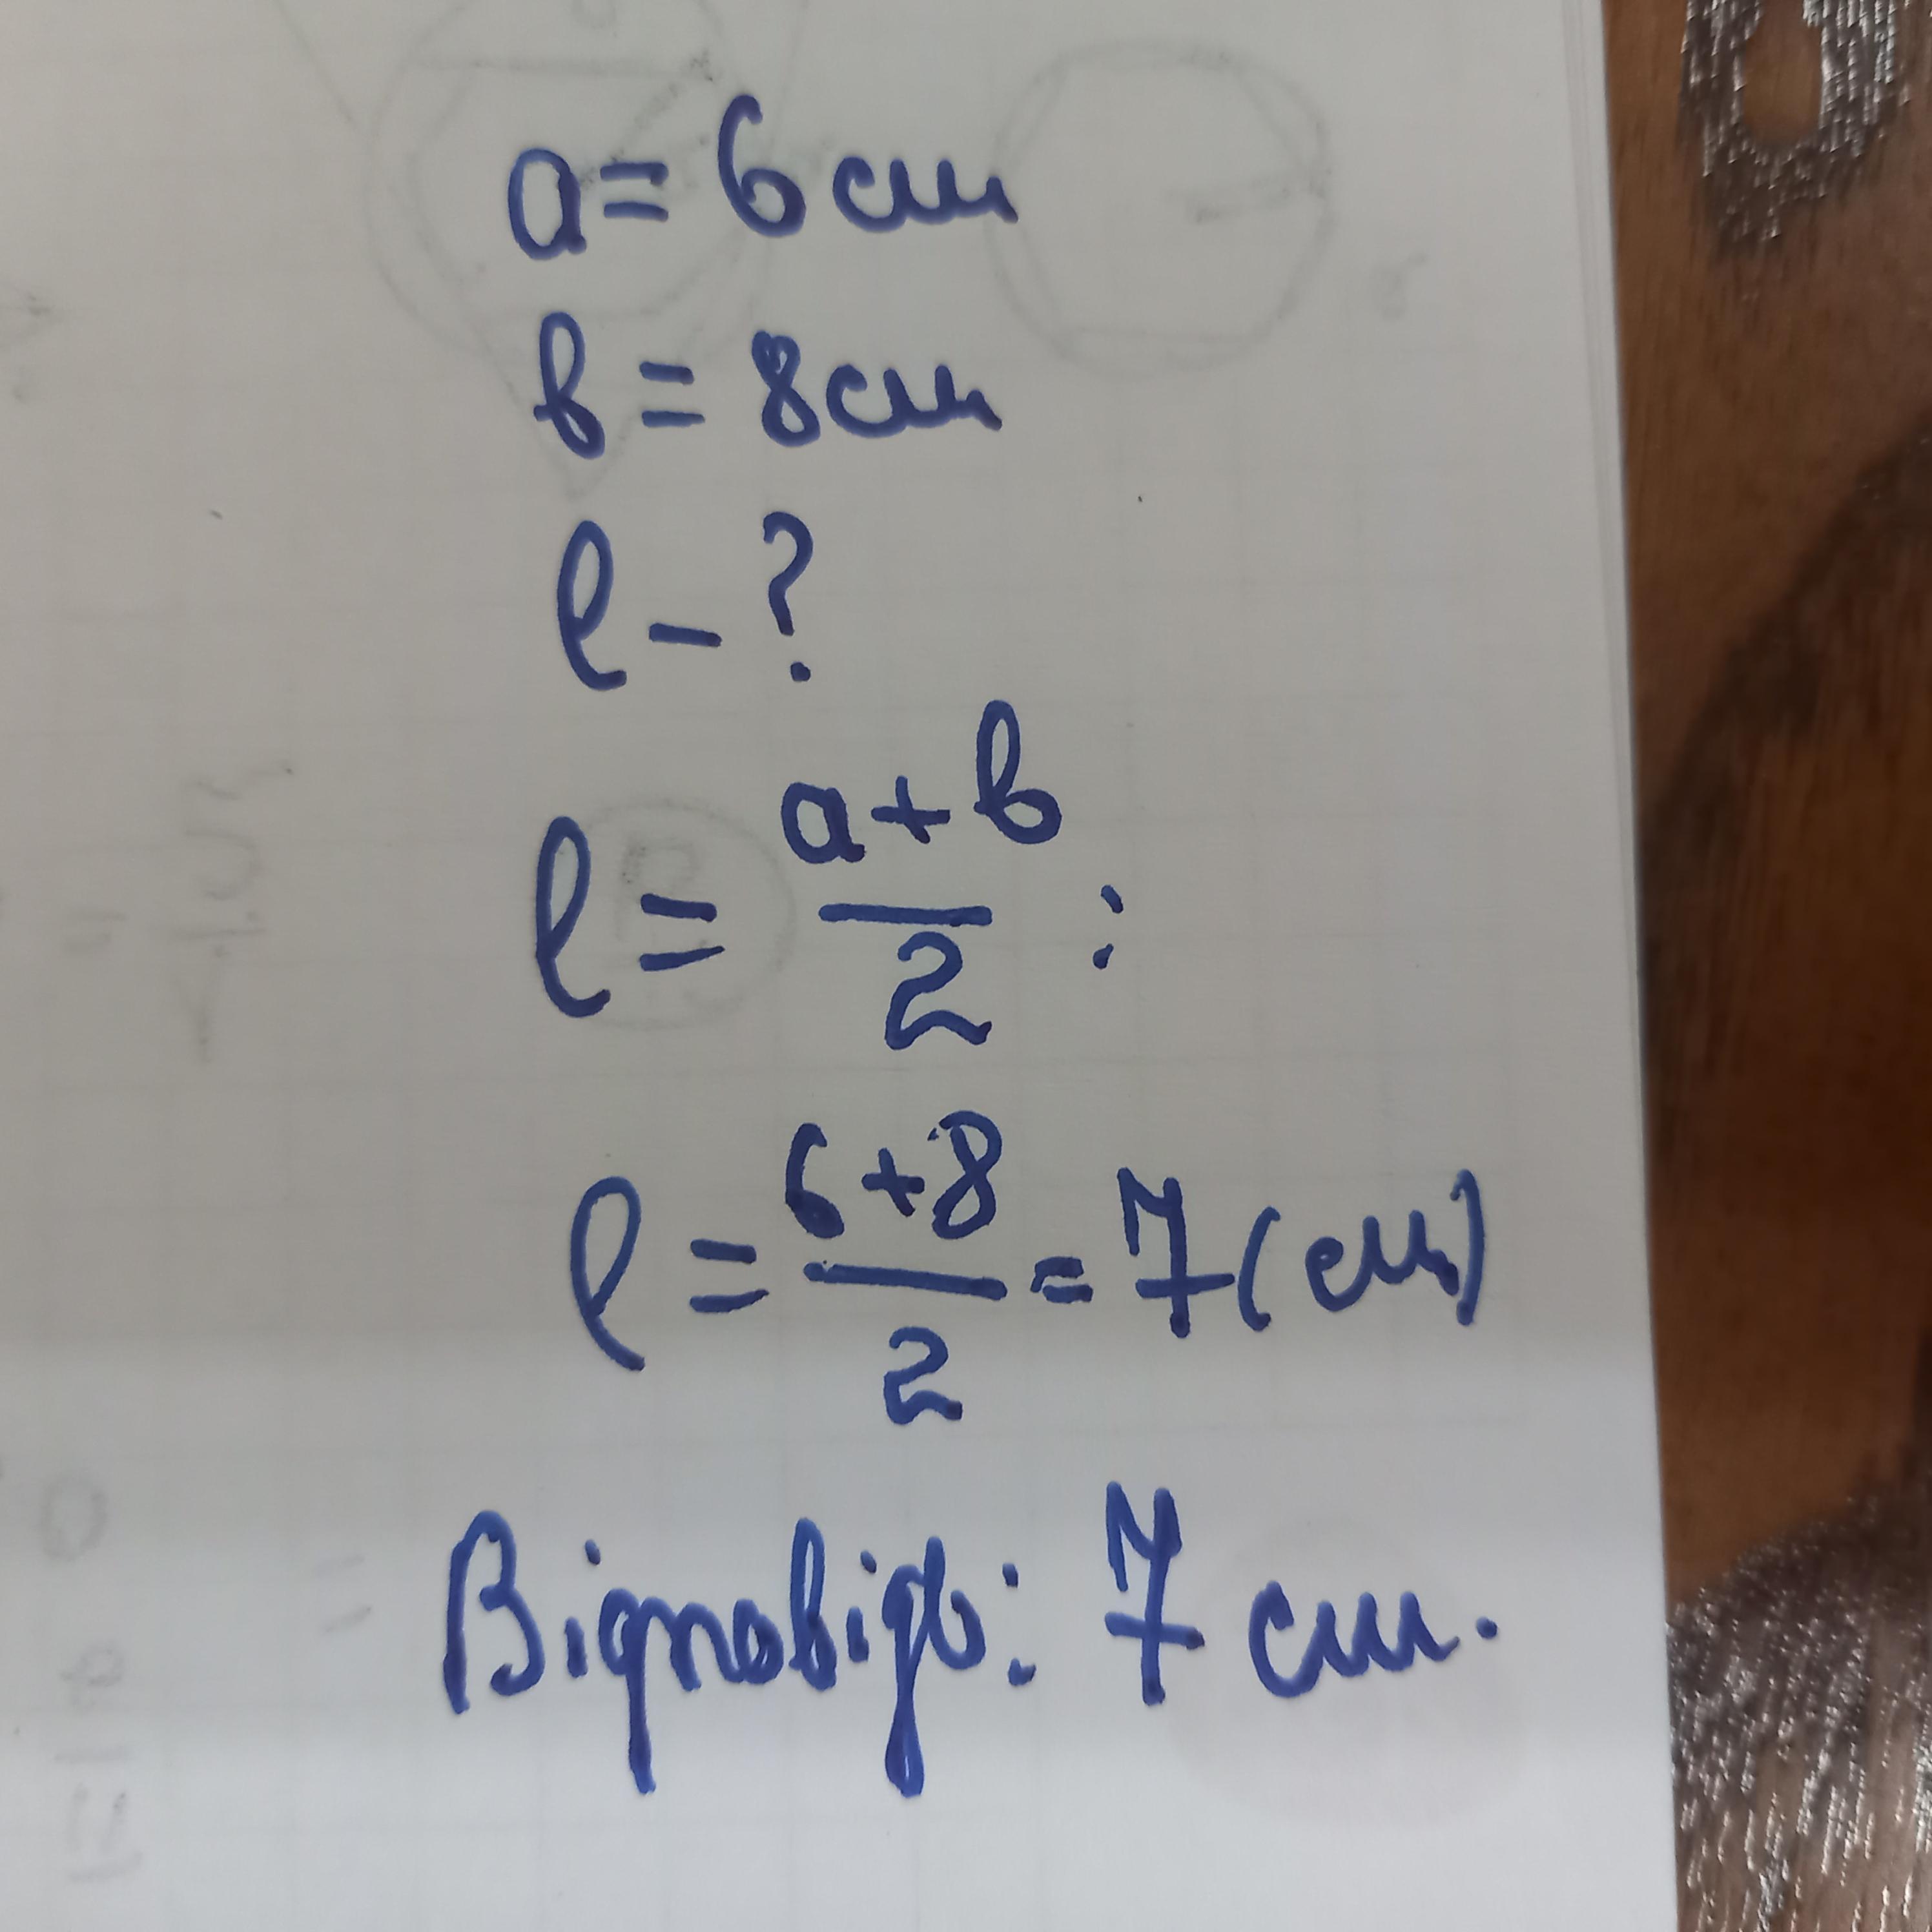 a = 6 см
b = 8 см
l - ?
l = a + b / 2 :
l = 6 + 8 / 2 = 7 (см)
Відповідь: 7 см.